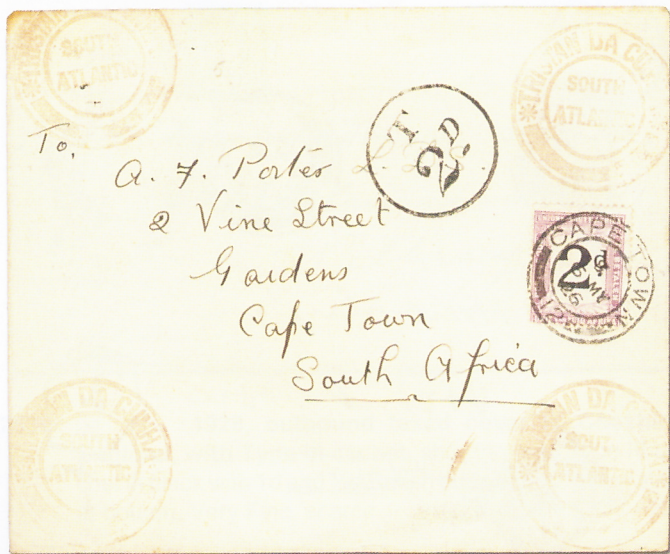 TRISTAN DA CUNHA
SOUTH
ATLANTIC
TRISTAN DA CUNHA
SOUTH
ATLANTIC
To,
T 2 D
A. F. Porter
2 Vine Street
Gardens
Cape Town
South Africa
2d
CAPE TOWN
MY
12
TRISTAN DA CUNHA
SOUTH
ATLANTIC
TRISTAN DA CUNHA
SOUTH
ATLANTIC